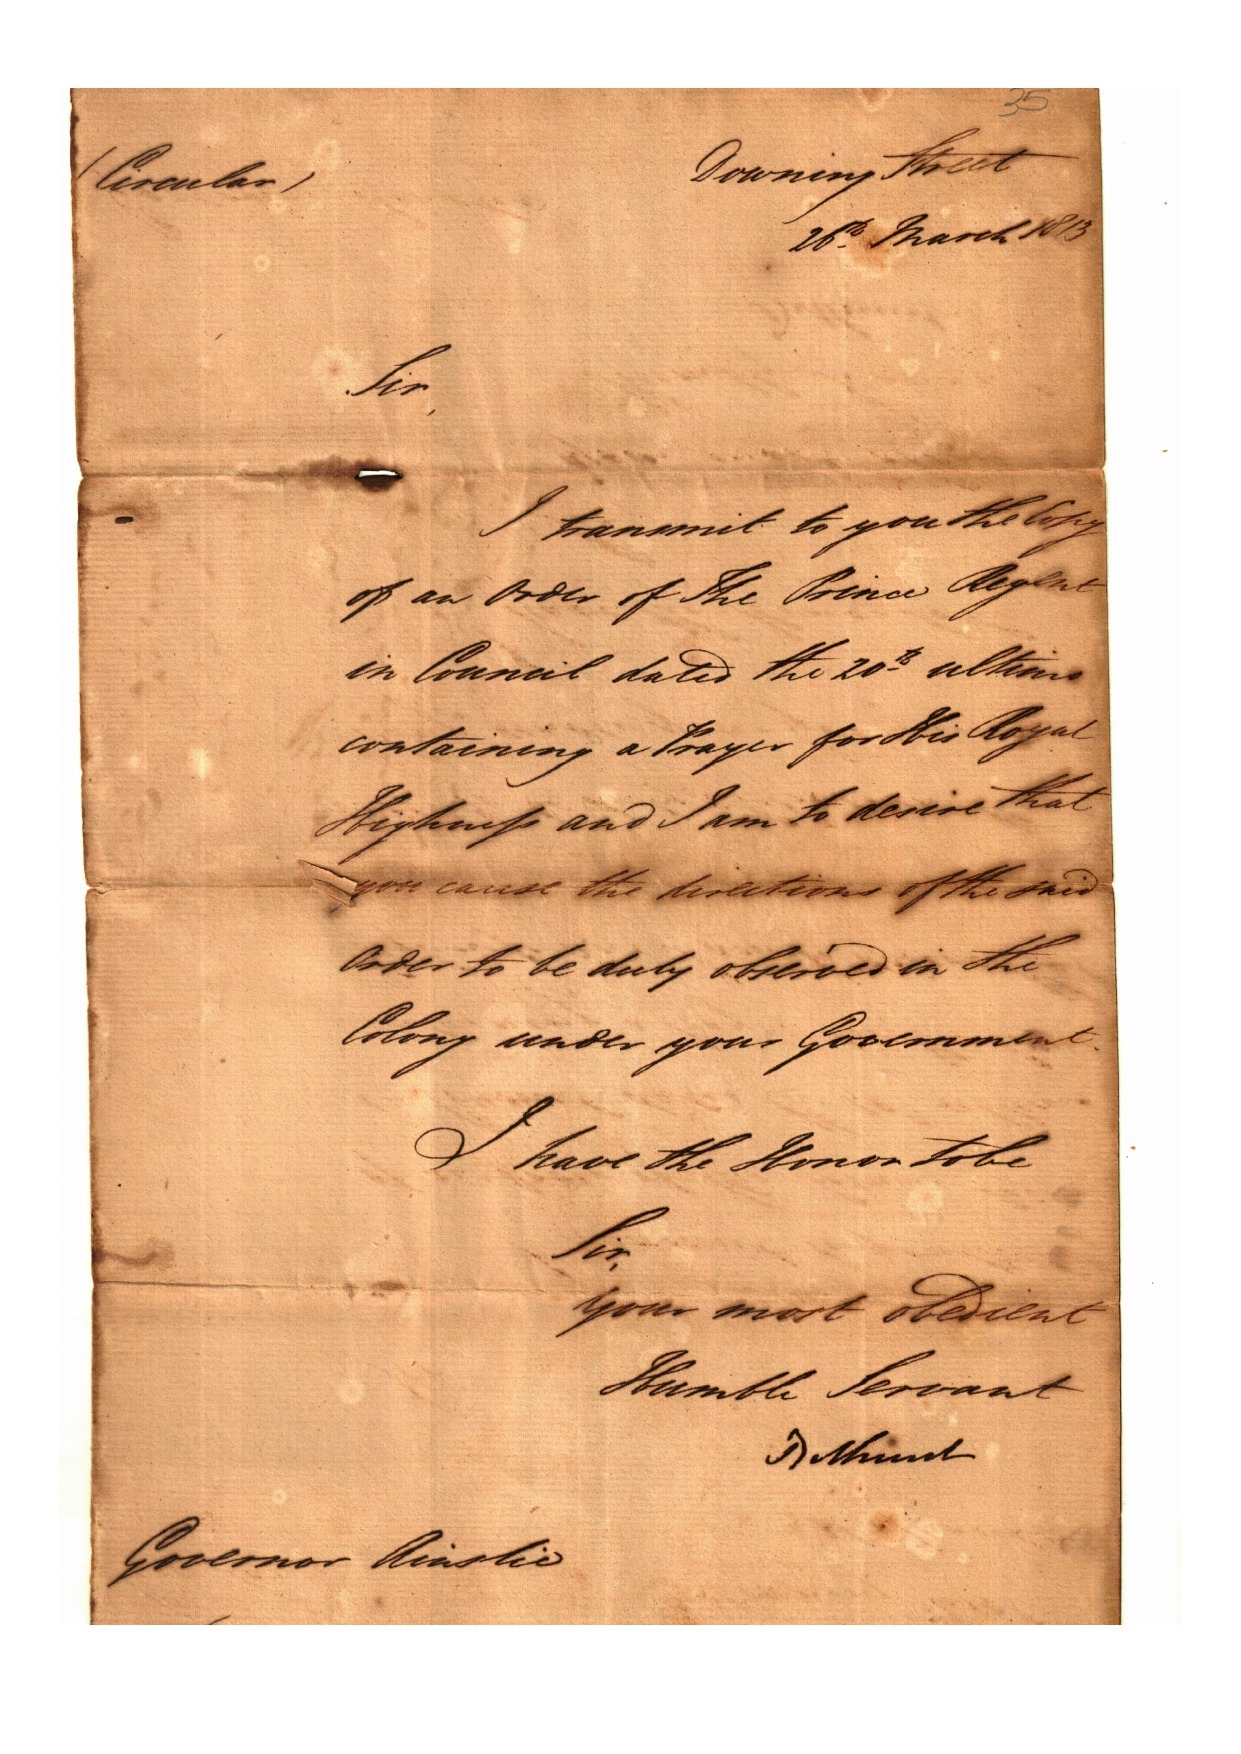 35
(Circular)
Downing Street
26th March 1813
Sir,
I transmit to you the Copy
of an Order of The Prince Regent
in Council dated the 20th ultimo
containing a Prayer for His Royal
Highness and I am to desire that
you cause the directions of the said
Order to be duly observed in the
Colony under your Government.
I have the Honor to be
Sir,
Your most obedient
Humble Servant
Bathurst
Governor Ainslie